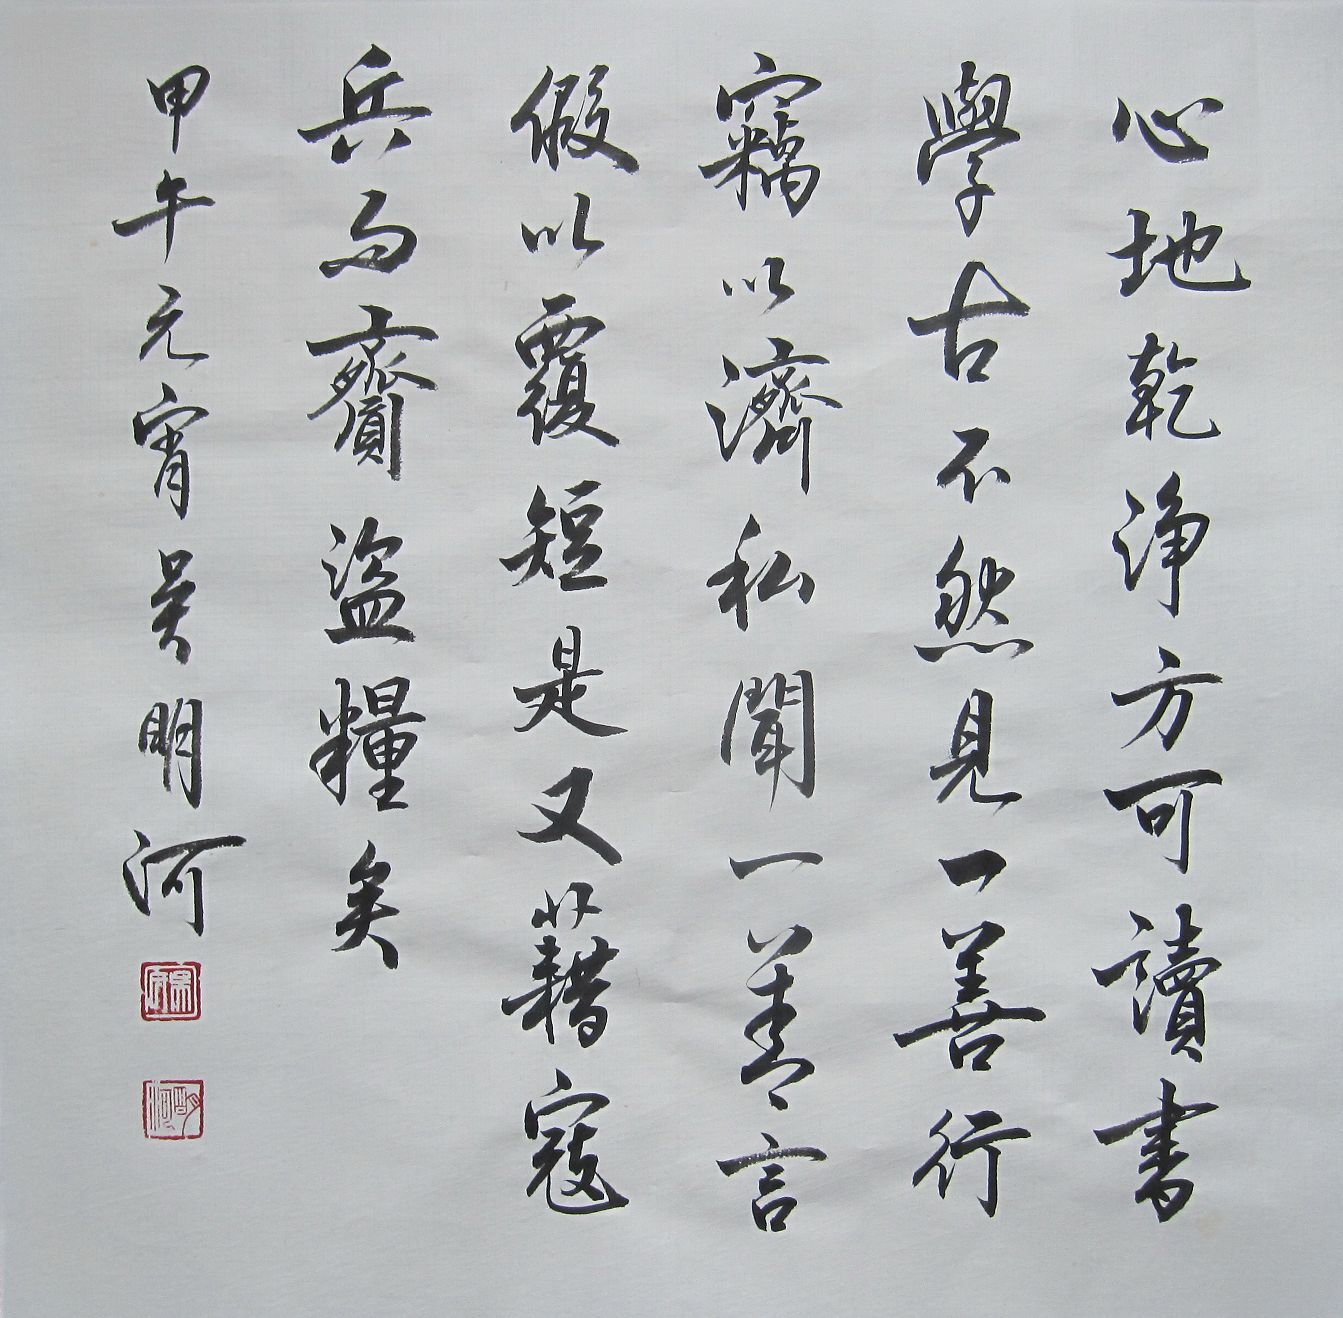 心地乾淨方可讀書
學古不然見一善行
竊以濟私聞一善言
假以覆短是又藉寇
兵而齎盜糧矣
甲午元宵吴明河